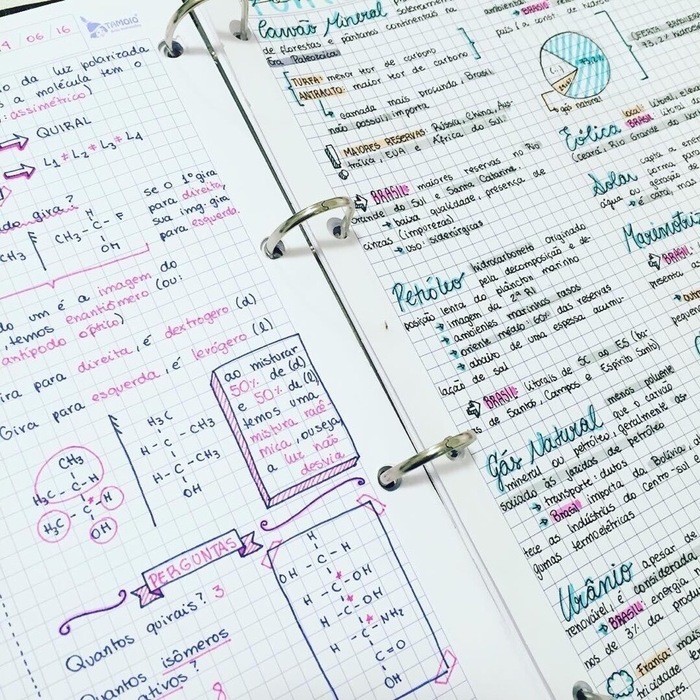 9 / 06 / 16
TAMOIO
o da luz polarizada
s a molécula tem o
: assimétrico)
QUIRAL
L1 ≠ L2 ≠ L3 ≠ L4
gira?
se o 1º gira
para direita,
sua img. gira
para esquerda.
CH3
H
CH3 - C - F
OH
do um é a imagem do
, temos enantiômero (ou:
antípodo óptico)
ira para direita, é dextrogero (d)
Gira para esquerda, é levógero (l)
ao misturar
50% de (d)
e 50% de (l)
temos uma
mistura racê-
mica, ou seja,
a luz não
desvia
H3C
H - C - CH3
H - C - CH3
OH
CH3
H3C - C - H
H3C - C - H
OH
PERGUNTAS
Quantos quirais? 3
Quantos isômeros
ativos?
8
H
OH - C - H
H - C - OH
H - C - OH
H - C - NH2
C = O
OH
Carvão Mineral
de florestas e pântanos continentais na
Era Paleozoica
TURFA: menor teor de carbono
ANTRACITO: maior teor de carbono
camada mais profunda Brasil
não possui, importa
MAIORES RESERVAS: Rússia, China, Aus-
trália, EUA e África do Sul
BRASIL: maiores reservas no Rio
Grande do Sul e Santa Catarina
baixa qualidade, presença de
cinzas (impurezas)
uso: siderúrgicas
Petróleo hidrocarboneto originado
pela decomposição e de-
posição lenta do plâncton marinho
imagem da 2ª RI
ambientes marinhos rasos
oriente médio: 60% das reservas
abaixo de uma espessa acumu-
lação de sal
BRASIL: litorais de SC ao ES (ba-
cias de Santos, Campos e Espírito Santo)
Gás Natural menos poluente
que o carvão
mineral ou petróleo, geralmente as-
sociado às jazidas de petróleo
transporte: dutos
Brasil importa da Bolívia,
tece as indústrias do Centro-sul e
gumas termoelétricas
Urânio apesar de
renovável, é considerada
BRASIL: energia n
nos de 3% da produ
França: mais
BRASIL
gás natural
Eólica local: litoral, elev
BRASIL: litoral
Ceará, Rio Grande
Solar capta a energ
água ou geração de
é cara, mas
Maremotriz
BRASIL:
presenta